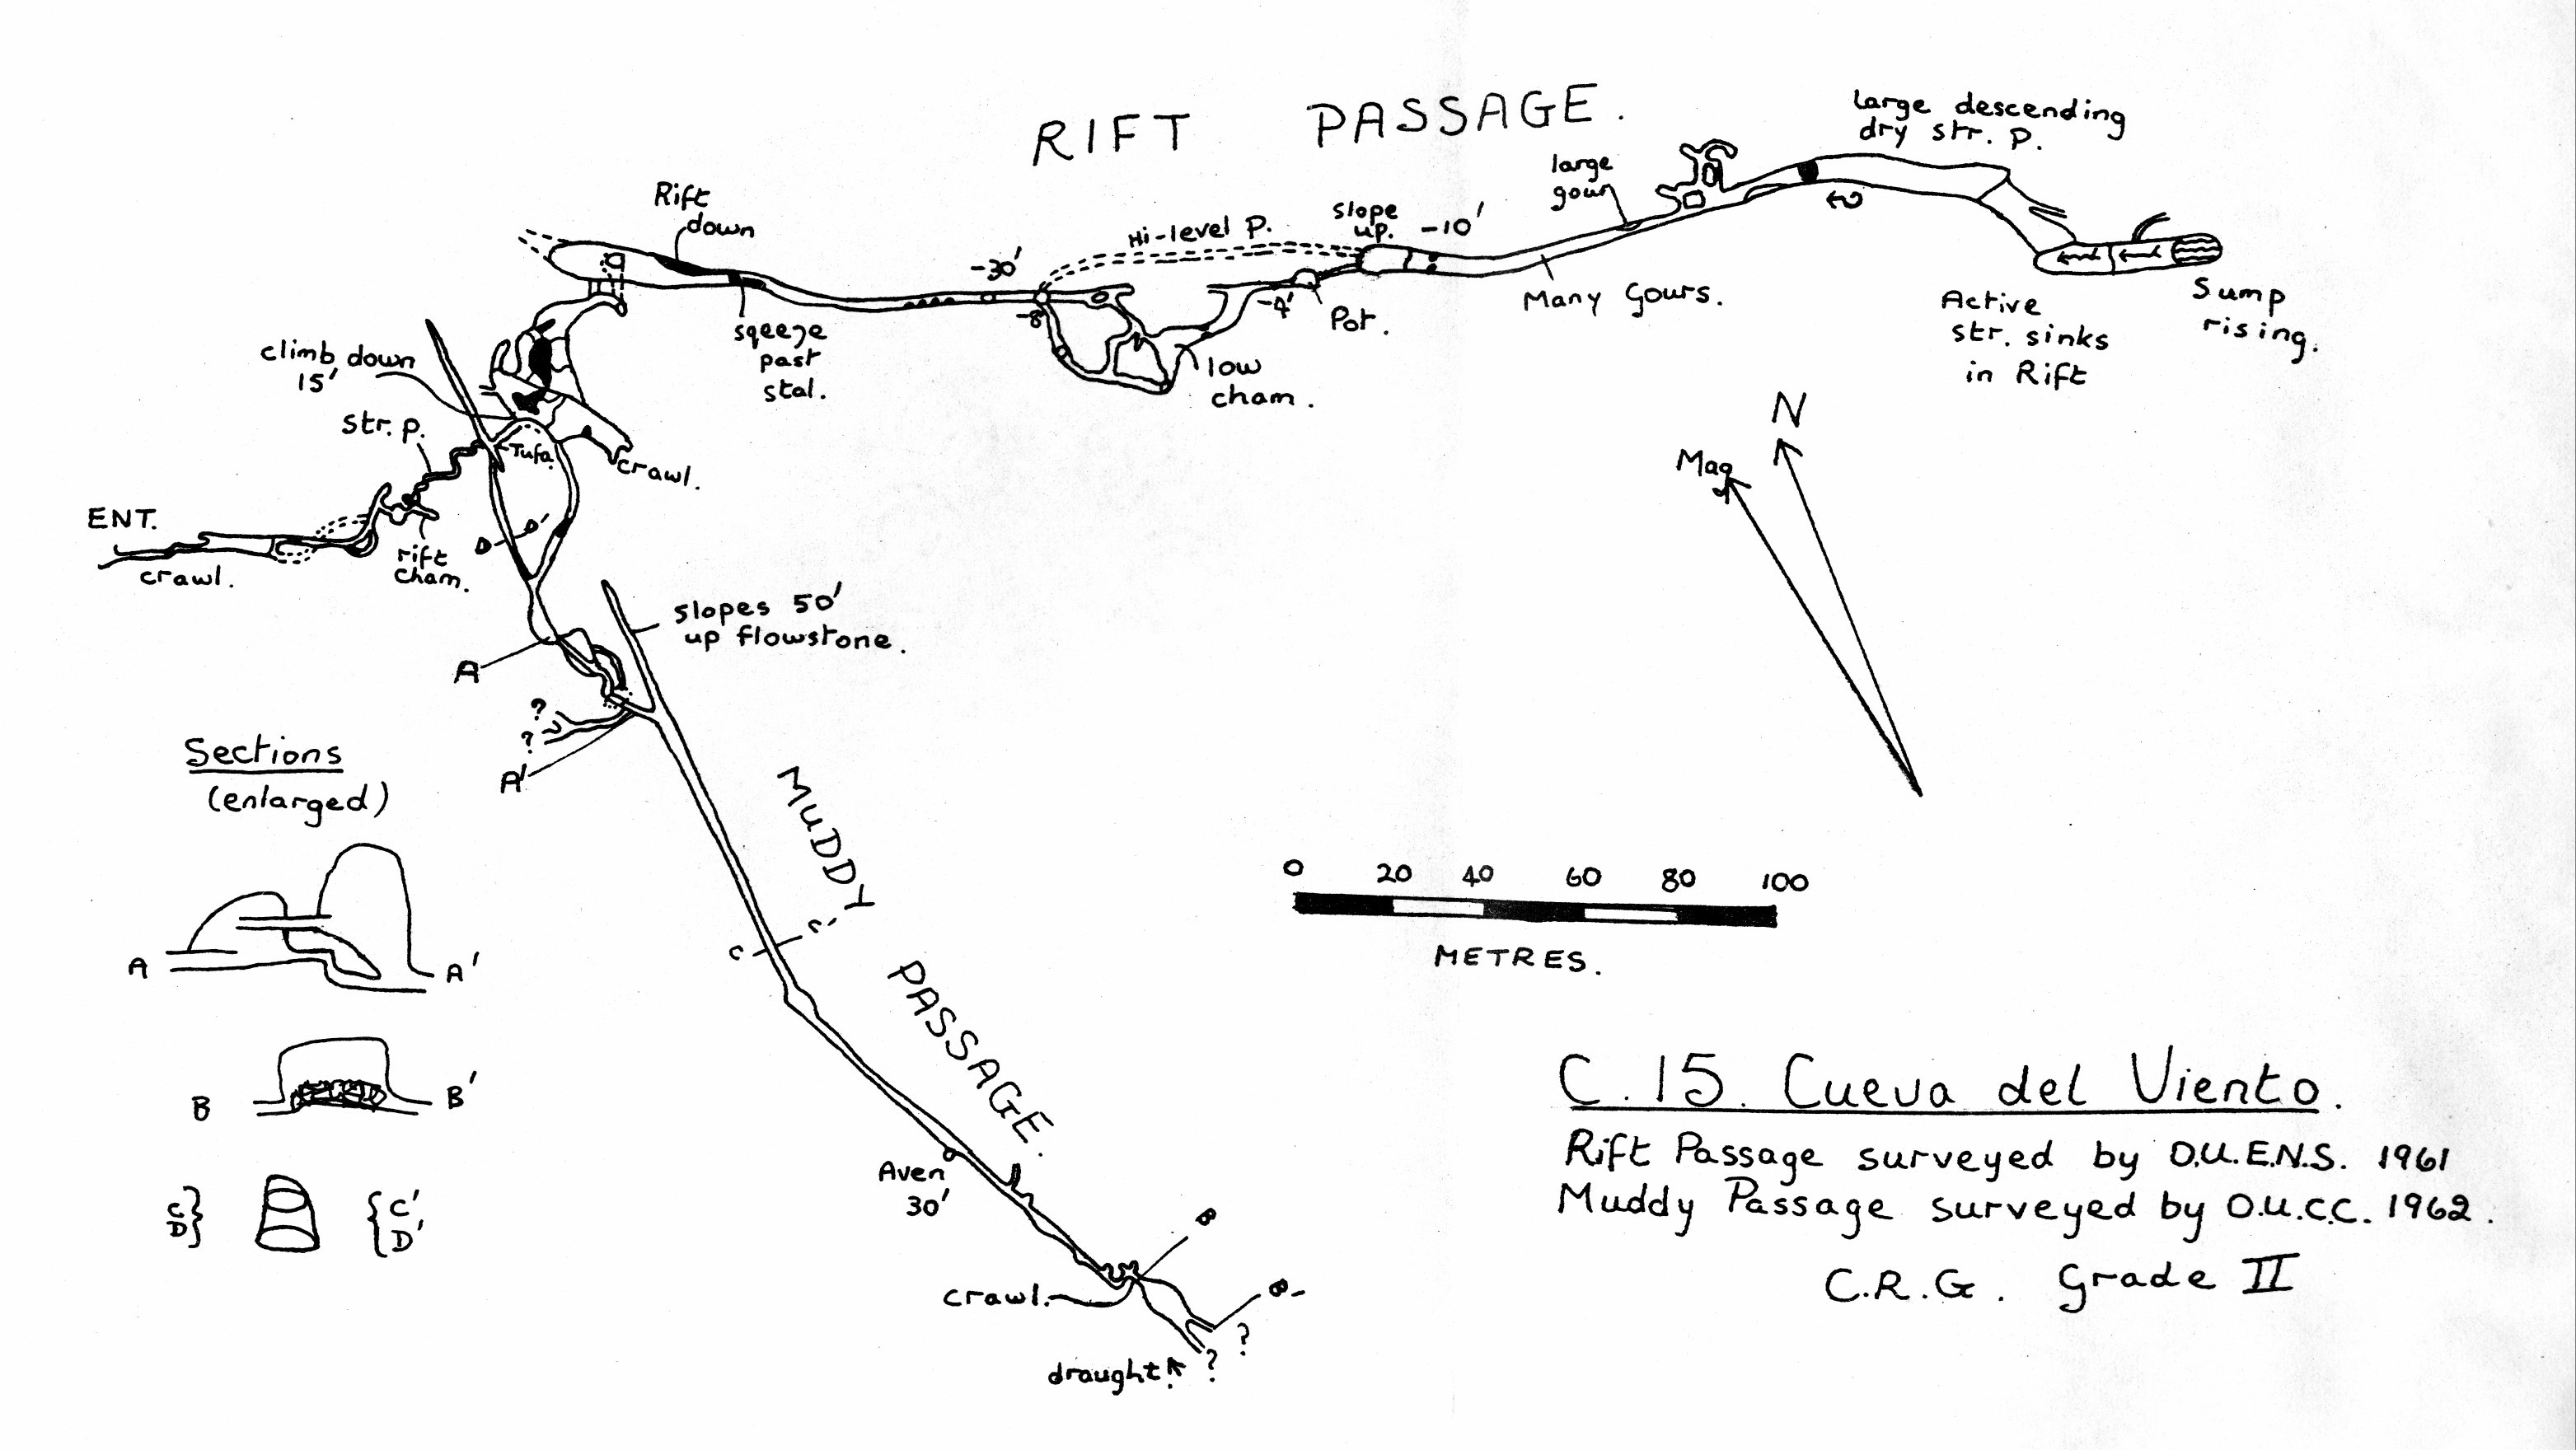 RIFT PASSAGE.
large descending
dry str. P.
large
gour
Rift
down
slope
up.
-10'
Hi-level P.
-30'
-8'
-4'
Pot.
Many Gours.
Active
str. sinks
in Rift
Sump
rising.
sqeeze
past
stal.
low
cham.
climb down
15'
str. P.
Tufa
crawl.
ENT.
crawl.
rift
cham.
D
D'
N
Mag
slopes 50'
up flowstone.
A
?
?
A'
MUDDY
PASSAGE.
C
C'
Sections
(enlarged)
A
A'
B
B'
C
D}
{C'
D'
0 20 40 60 80 100
METRES.
Aven
30'
B
B'
crawl.
?
?
draught.
C.15. Cueva del Viento.
Rift Passage surveyed by O.U.E.N.S. 1961
Muddy Passage surveyed by O.U.C.C. 1962.
C.R.G. Grade II